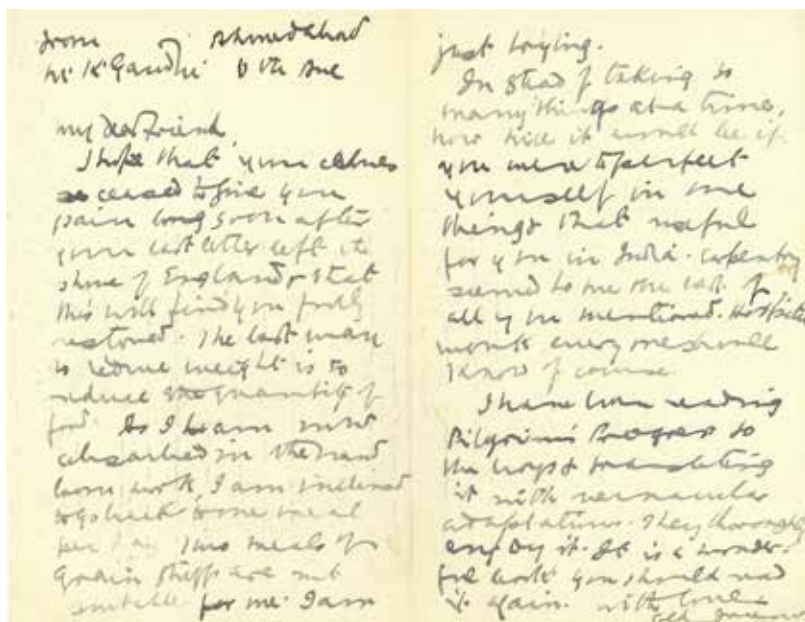 from Ahmedabad
M K Gandhi 6th
My dear friend,
I hope that your
ceased to give you
pain long soon after
your last letter left the
shore of England & that
this will find you fully
restored. The best way
to reduce weight is to
reduce the quantity of
food. As I am now
absorbed in the hand
loom work, I am inclined
to go back to one meal
per day. Two meals of
grain stuff are not
suitable for me. I am
just trying.
In stead of taking so
many things at a time,
how nice it would be if
you were to perfect
yourself in one
things that useful
for you in India. Carpentry
seemed to me the best of
all you mentioned. Hospital
work every one should
know of course.
I have been reading
Pilgrim's Progress to
the boys & translating
it with vernacular
adaptations. They thoroughly
enjoy it. It is a wonder-
ful work you should read
it again. with love